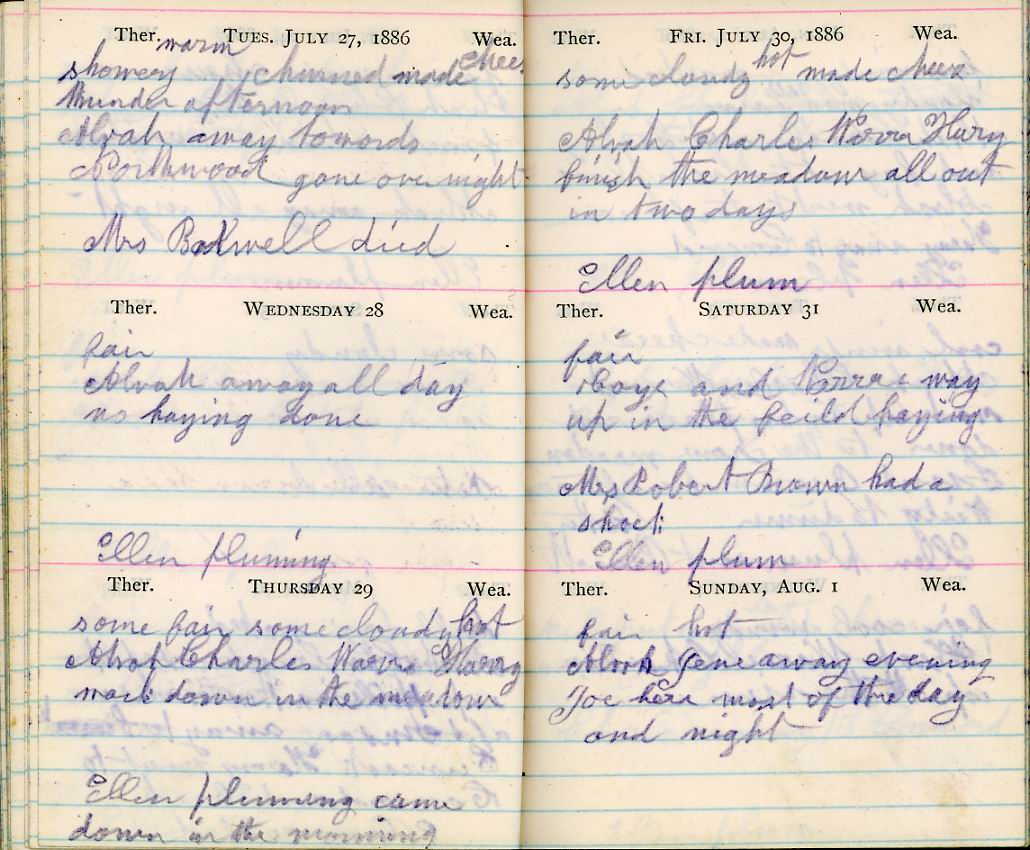 Ther. TUES. JULY 27, 1886 Wea.
warm
showery churned made chees
thunder afternoon
Alvah away towards
Northwood gone over night
Mrs Bakwell died
Ther. WEDNESDAY 28 Wea.
fair
Alvah away all day
no haying done
Ellen pluming
Ther. THURSDAY 29 Wea.
some fair some cloudy hot
Charles Harry
work down in the meadow
Ellen plumming came
down in the morning
Ther. FRI. JULY 30, 1886 Wea.
some cloudy hot made cheese
Alvah Charles Harry
finish the meadow all out
in two days
Ellen plum
Ther. SATURDAY 31 Wea.
fair
boys and way
up in the feild haying
Mrs Robert Brown had a
shock
Ellen plum
Ther. SUNDAY, AUG. 1 Wea.
fair hot
Alvah Gene away evening
Joe here most of the day
and night